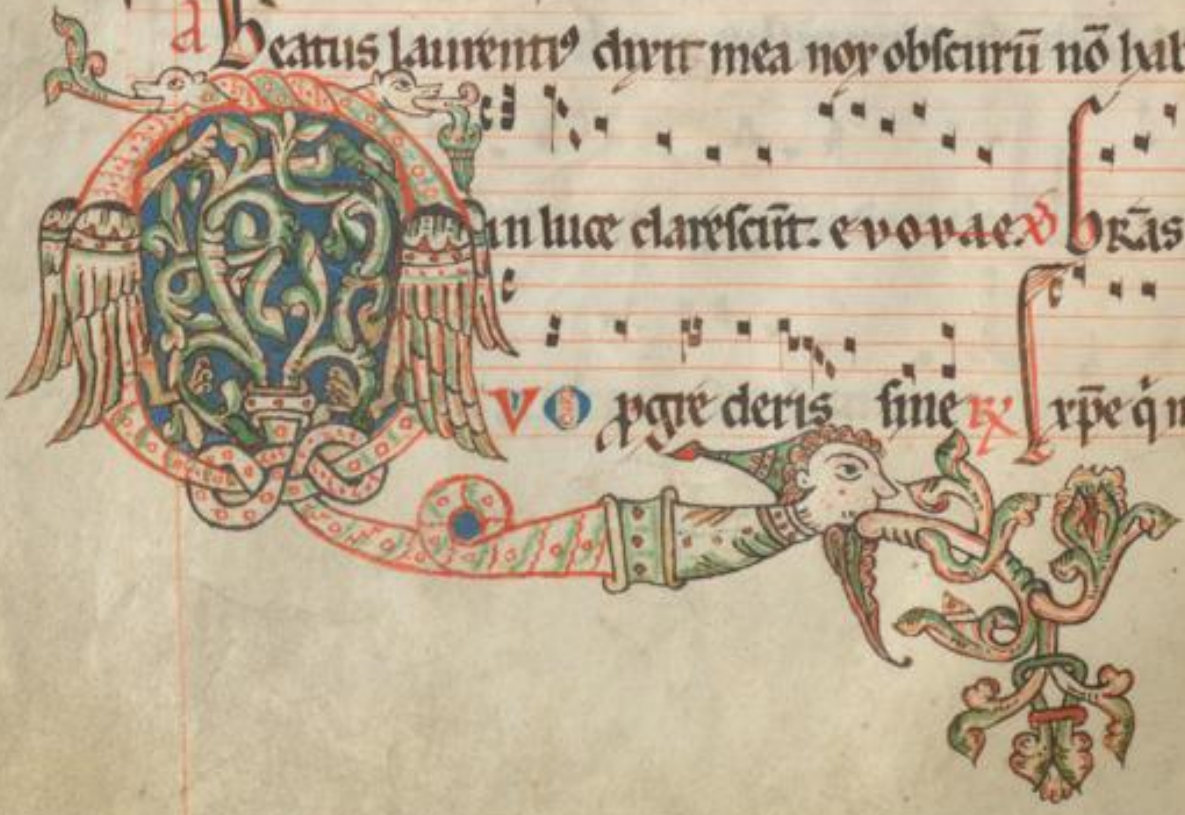 a Beatus laurentiꝰ dixit mea nox obscurū nō hab
in luce clarescūt. evovae. V
QVO ꝓgre deris sine ℞ xp̄e q